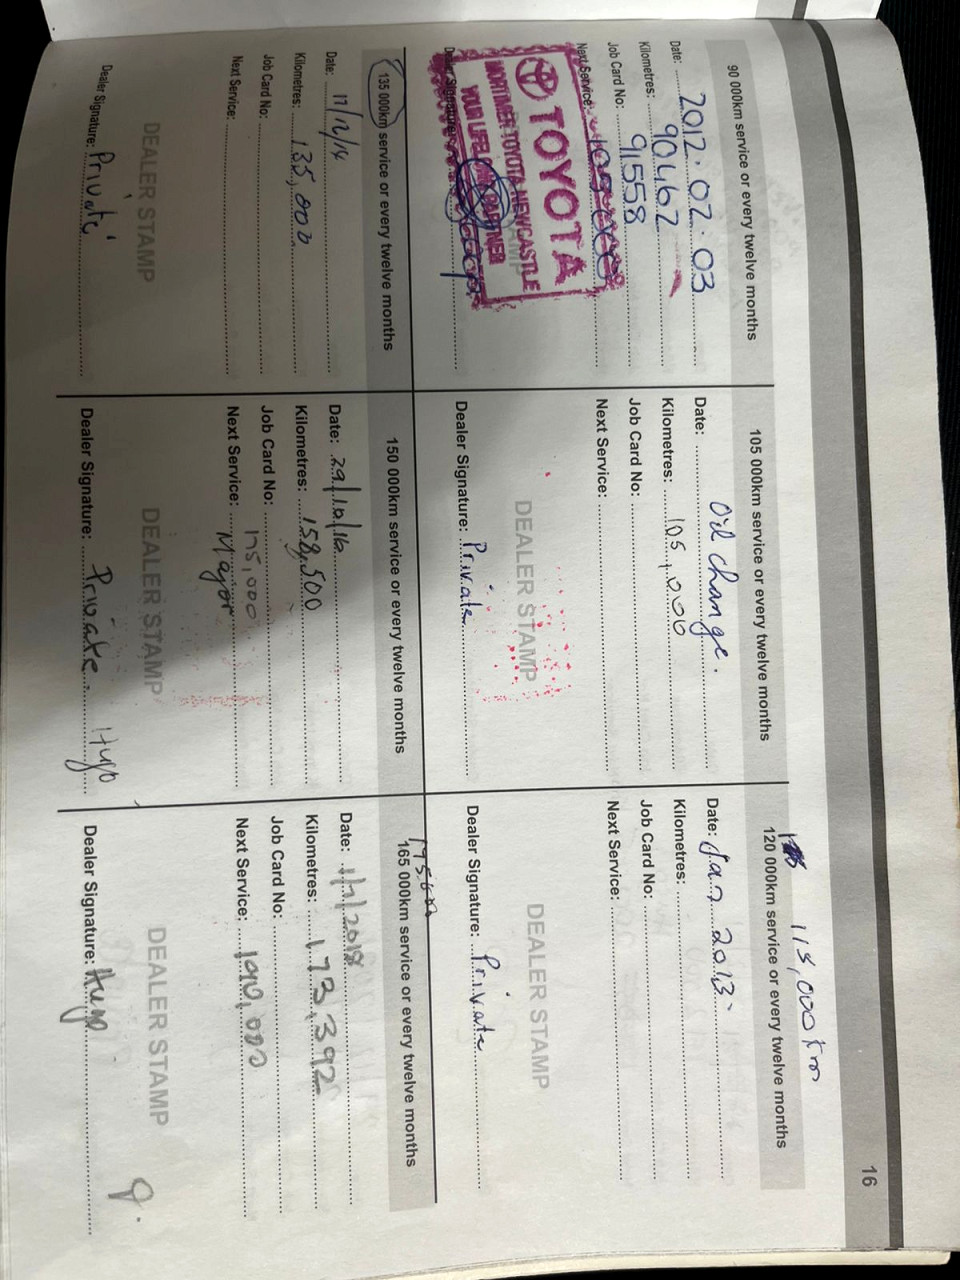 16
90 000km service or every twelve months
Date: 2012.02.03
Kilometres: 90462
Job Card No: 91558
Next Service: 105000
TOYOTA
MORTIMER TOYOTA NEWCASTLE
YOUR LIFELONG PARTNER
Dealer Signature:
115,000 km
105 000km service or every twelve months
Oil change.
Date:
Kilometres: 105,000
Job Card No:
Next Service:
DEALER STAMP
Dealer Signature: Private
120 000km service or every twelve months
Date: Jan 2013
Kilometres:
Job Card No:
Next Service:
DEALER STAMP
Dealer Signature: Private
135 000km service or every twelve months
Date: 17/12/14
Kilometres: 135,000
Job Card No:
Next Service:
DEALER STAMP
Dealer Signature: Private
150 000km service or every twelve months
Date: 29/10/16
Kilometres: 158,500
Job Card No:
175,000
Next Service: Major
DEALER STAMP
Dealer Signature: Private. Hugo
175,000
165 000km service or every twelve months
Date: 1/7/2018
Kilometres: 173,392
Job Card No:
Next Service: 190,000
DEALER STAMP
Dealer Signature: Hugo